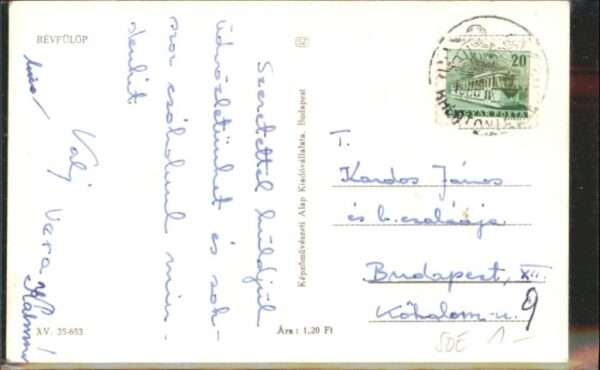 RÉVFÜLÖP
Szeretettel küldjük
üdvözletünket és sok-
szor csókolunk min-
denkit
Vali Vera Kálmán
XV. 35-653
Képzőművészeti Alap Kiadóvállalata, Budapest
Ára: 1,20 Ft
20
MAGYAR POSTA
T.
Kardos János
és b. családja
Budapest, XII.
Kőhalom-u. 9
1-